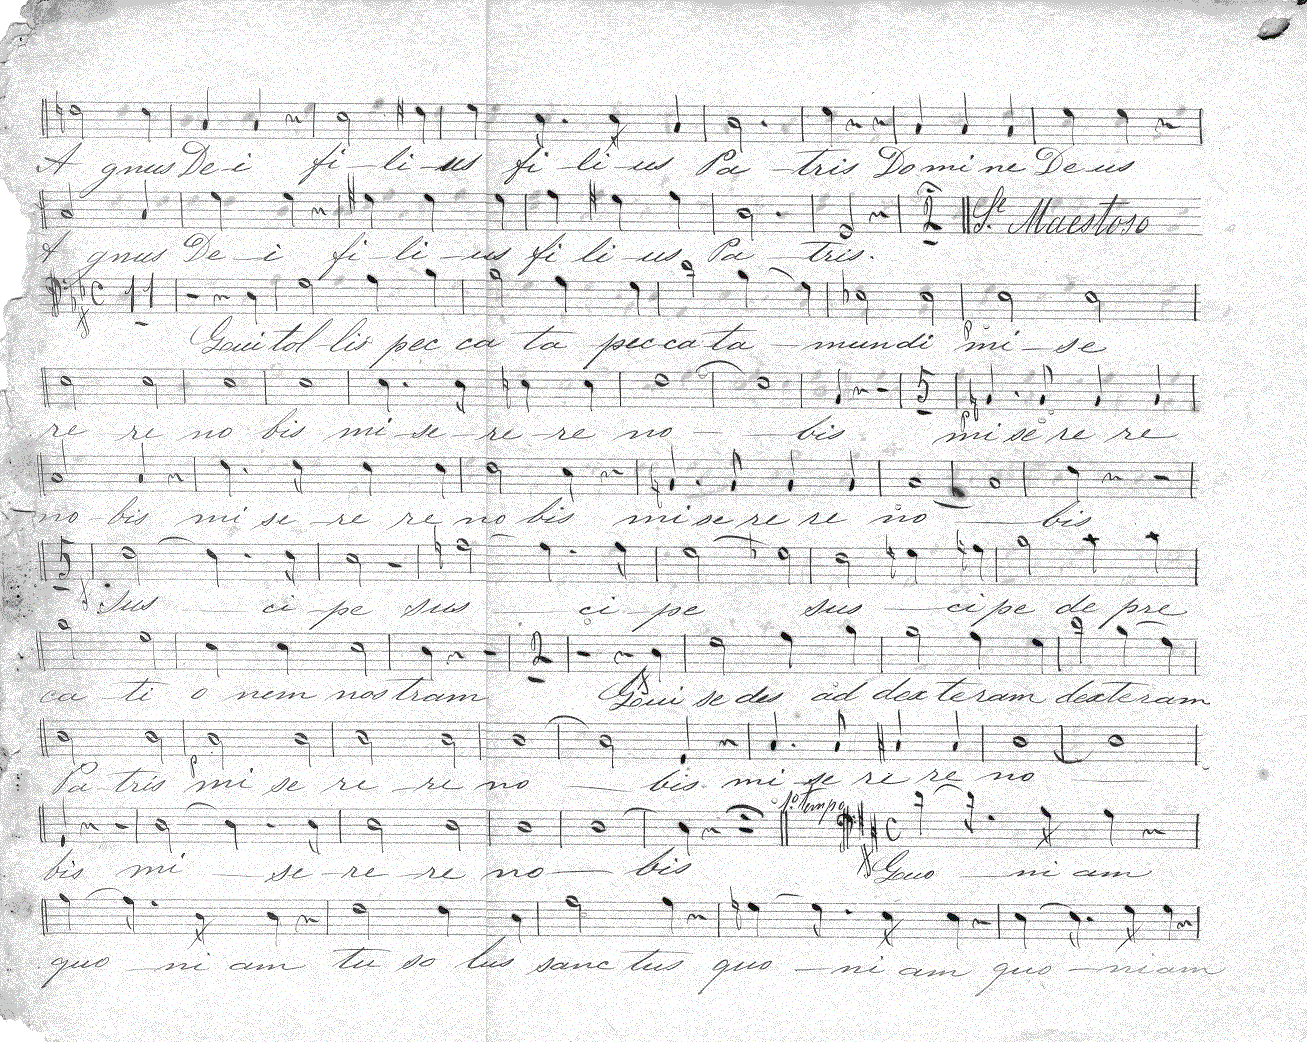 A gnus De-i fi-li-us fi-li-us Pa-tris Do mi ne De us
2 Se Maestoso
A gnus De-i fi-li-us fi li-us Pa-tris.
C 11
Qui tol-lis pec ca ta pec ca ta-mundi mi-se
5
re re no bis mi-se-re-re no--bis mi se re re
no-bis mi se-re re no bis mi se re re no-bis
5
sus-ci-pe sus-ci-pe sus-ci pe de pre
2
ca ti o nem nos tram Qui se des ad dex teram dexteram
Pa tris mi se re-re no-bis mi se re re no--
1º Tempo
C
bis mi-se-re-re no-bis Quo-ni am
quo-ni am tu so lus sanc tus quo-ni am quo-niam